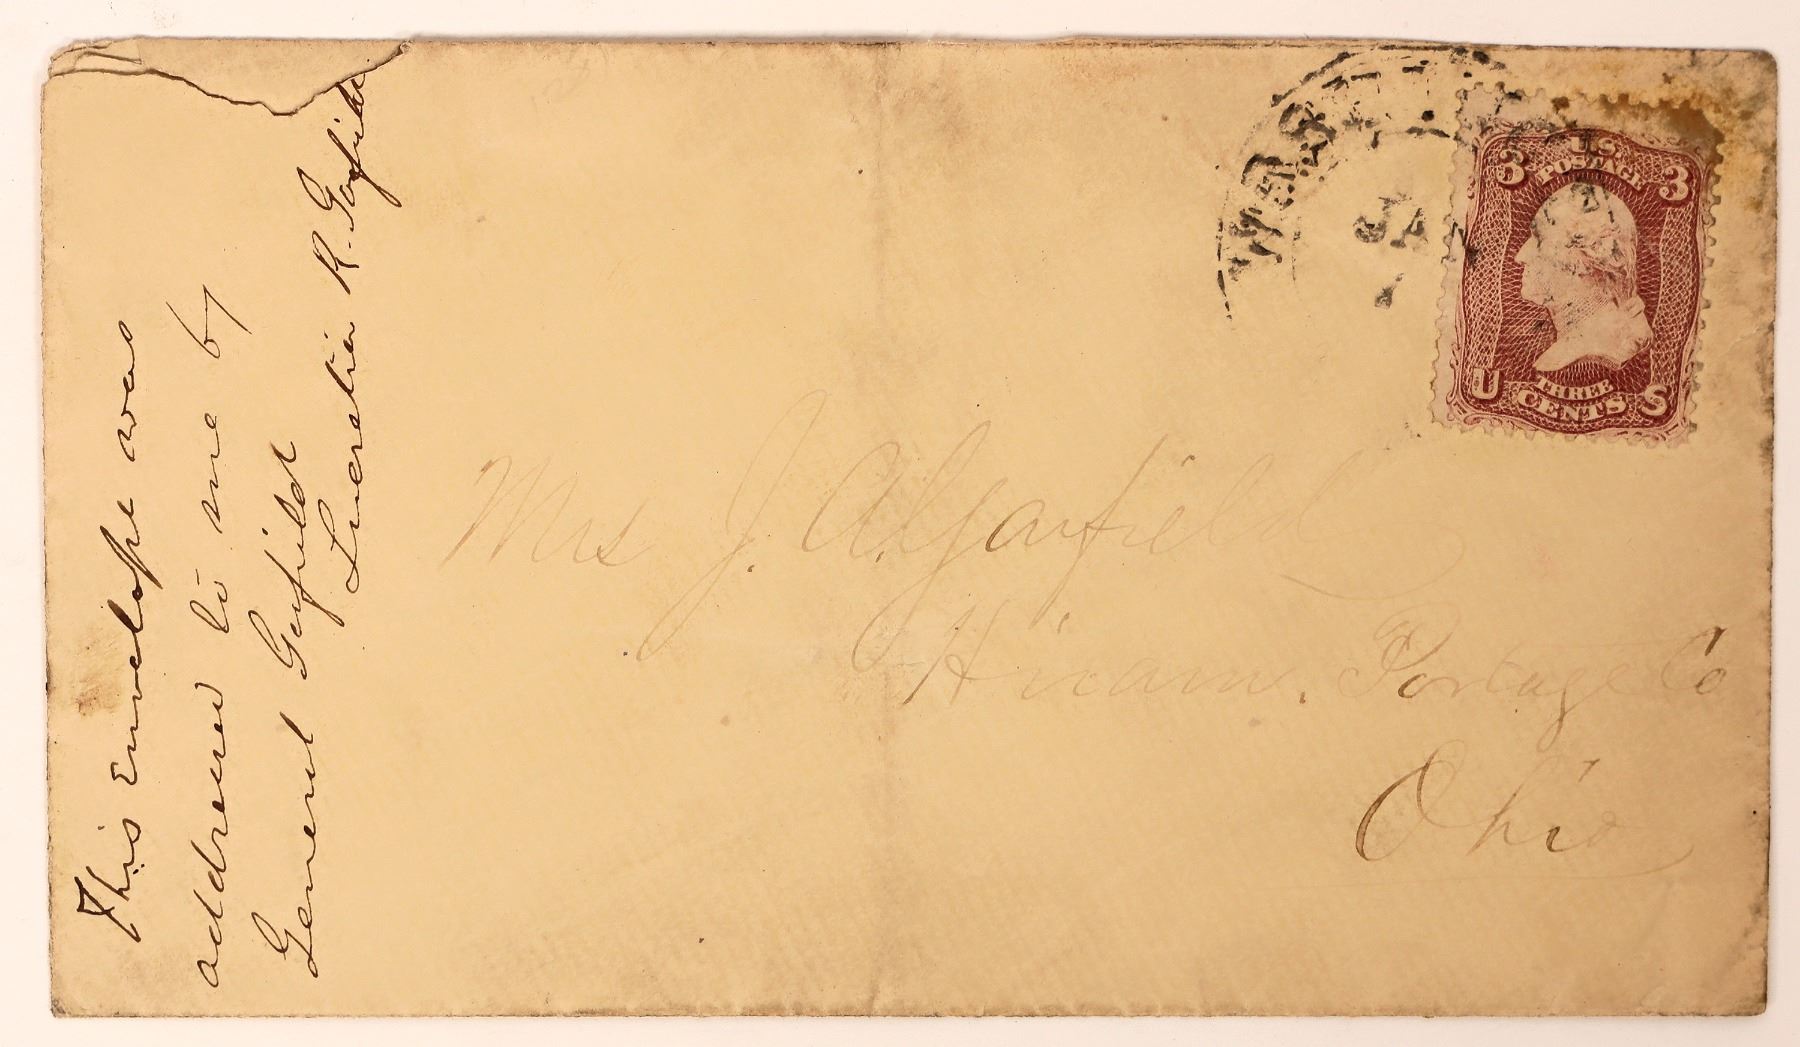 This Envelope was
addressed to me by
General Garfield
Lucretia R. Garfield
Mrs J. A. Garfield
Hiram. Portage Co
Ohio
JA
3 U.S. 3
POSTAGE
U THREE S
CENTS